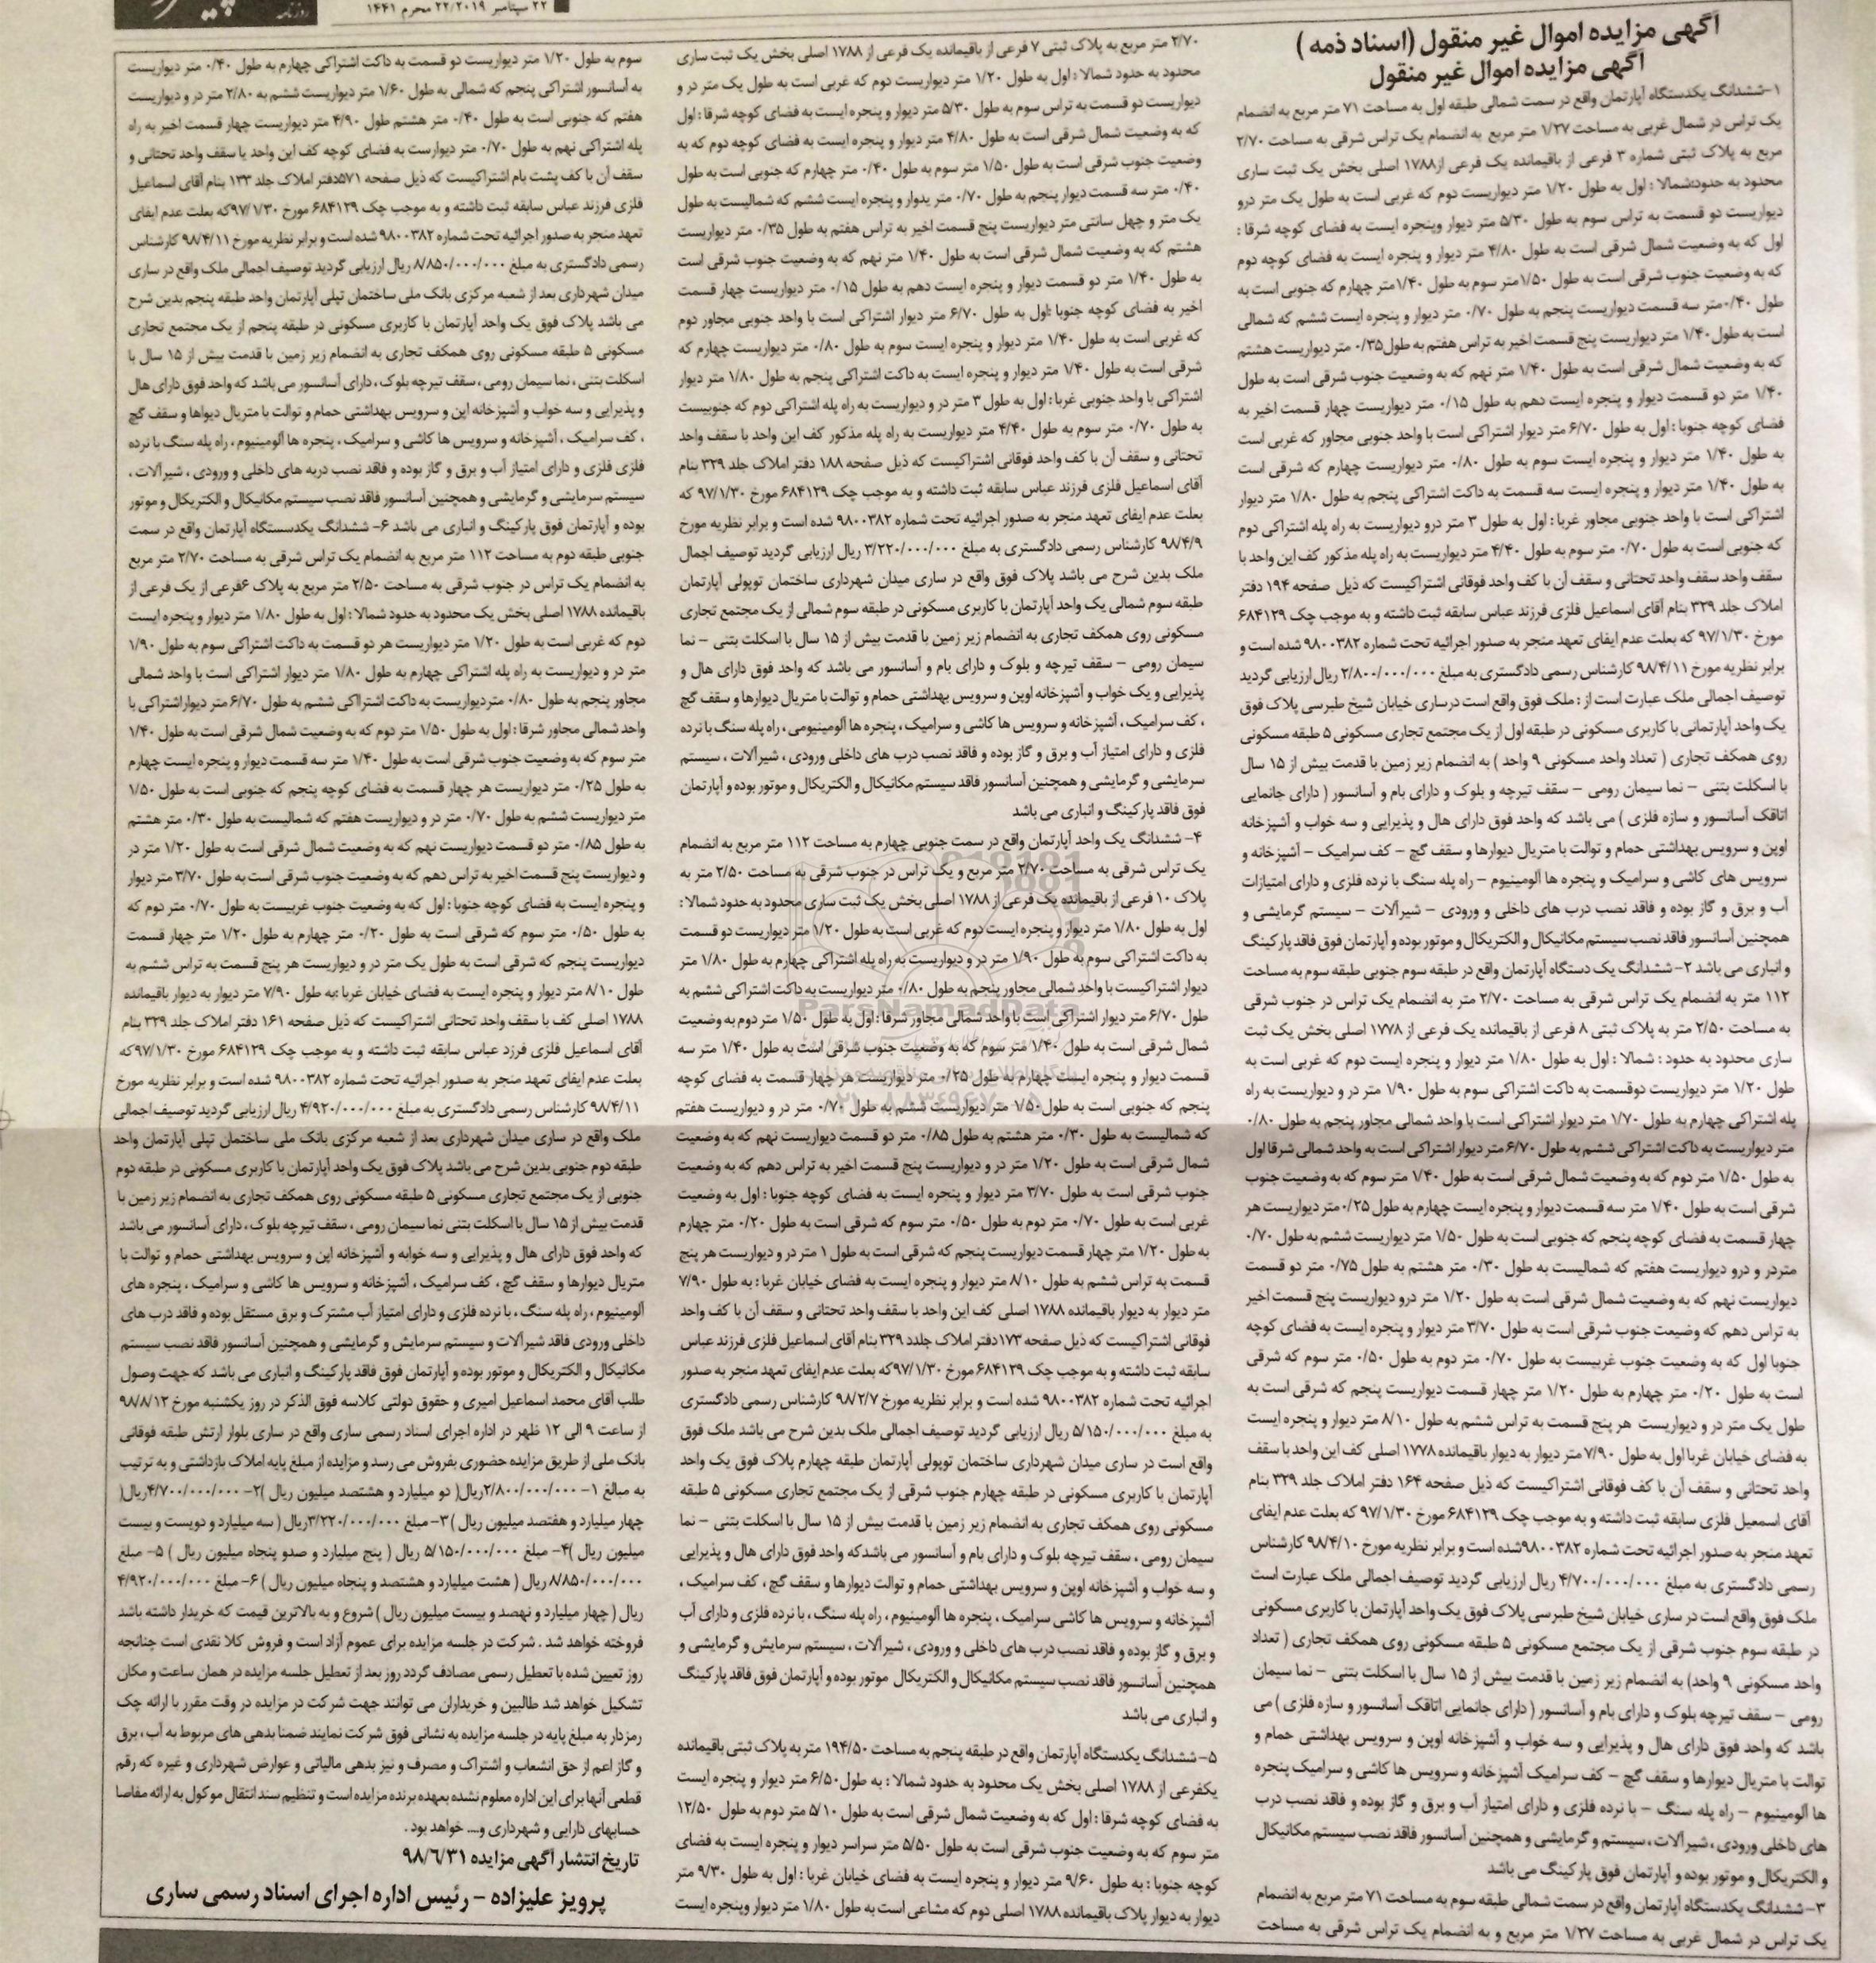 روزنامه
۲۲ سپتامبر ۲۲/۲۰۱۹ محرم ۱۴۴۱
آگهی مزایده اموال غیر منقول (اسناد ذمه)
آگهی مزایده اموال غیر منقول
۱-ششدانگ یکدستگاه آپارتمان واقع در سمت شمالی طبقه اول به مساحت ۷۱ متر مربع به انضمام
یک تراس در شمال غربی به مساحت ۱/۲۷ متر مربع به انضمام یک تراس شرقی به مساحت ۲/۷۰
مربع به پلاک ثبتی شماره ۳ فرعی از باقیمانده یک فرعی از۱۷۸۸ اصلی بخش یک ثبت ساری
محدود به حدود:شمالا : اول به طول ۱/۲۰ متر دیواریست دوم که غربی است به طول یک متر درو
دیواریست دو قسمت به تراس سوم به طول ۵/۳۰ متر دیوار وپنجره ایست به فضای کوچه شرقا :
اول که به وضعیت شمال شرقی است به طول ۴/۸۰ متر دیوار و پنجره ایست به فضای کوچه دوم
که به وضعیت جنوب شرقی است به طول ۱/۵۰متر سوم به طول ۱/۴۰متر چهارم که جنوبی است به
طول ۰/۴۰متر سه قسمت دیواریست پنجم به طول ۰/۷۰ متر دیوار و پنجره ایست ششم که شمالی
است به طول۱/۴۰ متر دیواریست پنج قسمت اخیر به تراس هفتم به طول۰/۳۵ متر دیواریست هشتم
که به وضعیت شمال شرقی است به طول ۱/۴۰ متر نهم که به وضعیت جنوب شرقی است به طول
۱/۴۰ متر دو قسمت دیوار و پنجره ایست دهم به طول ۰/۱۵ متر دیواریست چهار قسمت اخیر به
فضای کوچه جنوبا : اول به طول ۶/۷۰ متر دیوار اشتراکی است با واحد جنوبی مجاور که غربی است
به طول ۱/۴۰ متر دیوار و پنجره ایست سوم به طول ۰/۸۰ متر دیواریست چهارم که شرقی است
به طول ۱/۴۰ متر دیوار و پنجره ایست سه قسمت به داکت اشتراکی پنجم به طول ۱/۸۰ متر دیوار
اشتراکی است با واحد جنوبی مجاور غربا : اول به طول ۳ متر درو دیواریست به راه پله اشتراکی دوم
که جنوبی است به طول ۰/۷۰ متر سوم به طول ۴/۴۰ متر دیواریست به راه پله مذکور کف این واحد با
سقف واحد سقف واحد تحتانی و سقف آن با کف واحد فوقانی اشتراکیست که ذیل صفحه ۱۹۴ دفتر
املاک جلد ۳۲۹ بنام آقای اسماعیل فلزی فرزند عباس سابقه ثبت داشته و به موجب چک ۶۸۴۱۲۹
مورخ ۹۷/۱/۳۰ که بعلت عدم ایفای تعهد منجر به صدور اجرائیه تحت شماره ۹۸۰۰۳۸۲ شده است و
برابر نظریه مورخ ۹۸/۴/۱۱ کارشناس رسمی دادگستری به مبلغ ۲/۸۰۰/۰۰۰/۰۰۰ ریال ارزیابی گردید
توصیف اجمالی ملک عبارت است از : ملک فوق واقع است درساری خیابان شیخ طبرسی پلاک فوق
یک واحد آپارتمانی با کاربری مسکونی در طبقه اول از یک مجتمع تجاری مسکونی ۵ طبقه مسکونی
روی همکف تجاری ( تعداد واحد مسکونی ۹ واحد ) به انضمام زیر زمین با قدمت بیش از ۱۵ سال
با اسکلت بتنی – نما سیمان رومی – سقف تیرچه و بلوک و دارای بام و آسانسور ( دارای جانمایی
اتاقک آسانسور و سازه فلزی ) می باشد که واحد فوق دارای هال و پذیرایی و سه خواب و آشپزخانه
اوپن و سرویس بهداشتی حمام و توالت با متریال دیوارها و سقف گچ – کف سرامیک – آشپزخانه و
سرویس های کاشی و سرامیک و پنجره ها آلومینیوم – راه پله سنگ با نرده فلزی و دارای امتیازات
آب و برق و گاز بوده و فاقد نصب درب های داخلی و ورودی – شیرآلات – سیستم گرمایشی و
همچنین آسانسور فاقد نصب سیستم مکانیکال و الکتریکال و موتور بوده و آپارتمان فوق فاقد پارکینگ
و انباری می باشد ۲- ششدانگ یک دستگاه آپارتمان واقع در طبقه سوم جنوبی طبقه سوم به مساحت
۱۱۲ متر به انضمام یک تراس شرقی به مساحت ۲/۷۰ متر به انضمام یک تراس در جنوب شرقی
به مساحت ۲/۵۰ متر به پلاک ثبتی ۸ فرعی از باقیمانده یک فرعی از ۱۷۷۸ اصلی بخش یک ثبت
ساری محدود به حدود : شمالا : اول به طول ۱/۸۰ متر دیوار و پنجره ایست دوم که غربی است به
طول ۱/۲۰ متر دیواریست دوقسمت به داکت اشتراکی سوم به طول ۱/۹۰ متر در و دیواریست به راه
پله اشتراکی چهارم به طول ۱/۷۰ متر دیوار اشتراکی است با واحد شمالی مجاور پنجم به طول ۰/۸۰
متر دیواریست به داکت اشتراکی ششم به طول ۶/۷۰ متر دیوار اشتراکی است به واحد شمالی شرقا اول
به طول ۱/۵۰ متر دوم که به وضعیت شمال شرقی است به طول ۱/۴۰ متر سوم که به وضعیت جنوب
شرقی است به طول ۱/۴۰ متر سه قسمت دیوار و پنجره ایست چهارم به طول ۰/۲۵متر دیواریست هر
چهار قسمت به فضای کوچه پنجم که جنوبی است به طول ۱/۵۰ متر دیواریست ششم به طول ۰/۷۰
متردر و درو دیواریست هفتم که شمالیست به طول ۰/۳۰ متر هشتم به طول ۰/۷۵ متر دو قسمت
دیواریست نهم که به وضعیت شمال شرقی است به طول ۱/۲۰ متر درو دیواریست پنج قسمت اخیر
به تراس دهم که وضیعت جنوب شرقی است به طول ۳/۷۰ متر دیوار و پنجره ایست به فضای کوچه
جنوبا اول که به وضعیت جنوب غربیست به طول ۰/۷۰ متر دوم به طول ۰/۵۰ متر سوم که شرقی
است به طول ۰/۲۰ متر چهارم به طول ۱/۲۰ متر چهار قسمت دیواریست پنجم که شرقی است به
طول یک متر در و دیواریست هر پنج قسمت به تراس ششم به طول ۸/۱۰ متر دیوار و پنجره ایست
به فضای خیابان غربا اول به طول ۷/۹۰ متر دیوار به دیوار باقیمانده ۱۷۷۸ اصلی کف این واحد با سقف
واحد تحتانی و سقف آن با کف فوقانی اشتراکیست که ذیل صفحه ۱۶۴ دفتر املاک جلد ۳۲۹ بنام
آقای اسمعیل فلزی سابقه ثبت داشته و به موجب چک ۶۸۴۱۲۹ مورخ ۹۷/۱/۳۰ که بعلت عدم ایفای
تعهد منجر به صدور اجرائیه تحت شماره ۹۸۰۰۳۸۲شده است و برابر نظریه مورخ ۹۸/۴/۱۰ کارشناس
رسمی دادگستری به مبلغ ۴/۷۰۰/۰۰۰/۰۰۰ ریال ارزیابی گردید توصیف اجمالی ملک عبارت است
ملک فوق واقع است در ساری خیابان شیخ طبرسی پلاک فوق یک واحد آپارتمان با کاربری مسکونی
در طبقه سوم جنوب شرقی از یک مجتمع مسکونی ۵ طبقه مسکونی روی همکف تجاری ( تعداد
واحد مسکونی ۹ واحد) به انضمام زیر زمین با قدمت بیش از ۱۵ سال با اسکلت بتنی – نما سیمان
رومی – سقف تیرچه بلوک و دارای بام و آسانسور ( دارای جانمایی اتاقک آسانسور و سازه فلزی ) می
باشد که واحد فوق دارای هال و پذیرایی و سه خواب و آشپزخانه اوپن و سرویس بهداشتی حمام و
توالت با متریال دیوارها و سقف گچ – کف سرامیک آشپزخانه و سرویس ها کاشی و سرامیک پنجره
ها آلومینیوم – راه پله سنگ – با نرده فلزی و دارای امتیاز آب و برق و گاز بوده و فاقد نصب درب
های داخلی ورودی ، شیرآلات ، سیستم و گرمایشی و همچنین آسانسور فاقد نصب سیستم مکانیکال
و الکتریکال و موتور بوده و آپارتمان فوق پارکینگ می باشد
۳-ششدانگ یکدستگاه آپارتمان واقع در سمت شمالی طبقه سوم به مساحت ۷۱ متر مربع به انضمام
یک تراس در شمال غربی به مساحت ۱/۲۷ متر مربع و به انضمام یک تراس شرقی به مساحت
۲/۷۰ متر مربع به پلاک ثبتی ۷ فرعی از باقیمانده یک فرعی از ۱۷۸۸ اصلی بخش یک ثبت ساری
محدود به حدود شمالا : اول به طول ۱/۲۰ متر دیواریست دوم که غربی است به طول یک متر در و
دیواریست دو قسمت به تراس سوم به طول ۵/۳۰ متر دیوار و پنجره ایست به فضای کوچه شرقا : اول
که به وضعیت شمال شرقی است به طول ۴/۸۰ متر دیوار و پنجره ایست به فضای کوچه دوم که به
وضعیت جنوب شرقی است به طول ۱/۵۰ متر سوم به طول ۰/۴۰ متر چهارم که جنوبی است به طول
۰/۴۰ متر سه قسمت دیوار پنجم به طول ۰/۷۰ متر یدوار و پنجره ایست ششم که شمالیست به طول
یک متر و چهل سانتی متر دیواریست پنج قسمت اخیر به تراس هفتم به طول ۰/۳۵ متر دیواریست
هشتم که به وضعیت شمال شرقی است به طول ۱/۴۰ متر نهم که به وضعیت جنوب شرقی است
به طول ۱/۴۰ متر دو قسمت دیوار و پنجره ایست دهم به طول ۰/۱۵ متر دیواریست چهار قسمت
اخیر به فضای کوچه جنوبا :اول به طول ۶/۷۰ متر دیوار اشتراکی است با واحد جنوبی مجاور دوم
که غربی است به طول ۱/۴۰ متر دیوار و پنجره ایست سوم به طول ۰/۸۰ متر دیواریست چهارم که
شرقی است به طول ۱/۴۰ متر دیوار و پنجره ایست به داکت اشتراکی پنجم به طول ۱/۸۰ متر دیوار
اشتراکی با واحد جنوبی غربا : اول به طول ۳ متر در و دیواریست به راه پله اشتراکی دوم که جنوبیست
به طول ۰/۷۰ متر سوم به طول ۴/۴۰ متر دیواریست به راه پله مذکور کف این واحد با سقف واحد
تحتانی و سقف آن با کف واحد فوقانی اشتراکیست که ذیل صفحه ۱۸۸ دفتر املاک جلد ۳۲۹ بنام
آقای اسماعیل فلزی فرزند عباس سابقه ثبت داشته و به موجب چک ۶۸۴۱۲۹ مورخ ۹۷/۱/۳۰ که
بعلت عدم ایفای تعهد منجر به صدور اجرائیه تحت شماره ۹۸۰۰۳۸۲ شده است و برابر نظریه مورخ
۹۸/۴/۹ کارشناس رسمی دادگستری به مبلغ ۳/۲۲۰/۰۰۰/۰۰۰ ریال ارزیابی گردید توصیف اجمال
ملک بدین شرح می باشد پلاک فوق واقع در ساری میدان شهرداری ساختمان توپولی آپارتمان
طبقه سوم شمالی یک واحد آپارتمان با کاربری مسکونی در طبقه سوم شمالی از یک مجتمع تجاری
مسکونی روی همکف تجاری به انضمام زیر زمین با قدمت بیش از ۱۵ سال با اسکلت بتنی – نما
سیمان رومی – سقف تیرچه و بلوک و دارای بام و آسانسور می باشد که واحد فوق دارای هال و
پذیرایی و یک خواب و آشپزخانه اوپن و سرویس بهداشتی حمام و توالت با متریال دیوارها و سقف گچ
، کف سرامیک ، آشپزخانه و سرویس ها کاشی و سرامیک ، پنجره ها آلومینیومی ، راه پله سنگ با نرده
فلزی و دارای امتیاز آب و برق و گاز بوده و فاقد نصب درب های داخلی ورودی ، شیرآلات ، سیستم
سرمایشی و گرمایشی و همچنین آسانسور فاقد سیستم مکانیکال و الکتریکال و موتور بوده و آپارتمان
فوق فاقد پارکینگ و انباری می باشد
۴- ششدانگ یک واحد آپارتمان واقع در سمت جنوبی چهارم به مساحت ۱۱۲ متر مربع به انضمام
یک تراس شرقی به مساحت ۲/۷۰ متر مربع و یک تراس در جنوب شرقی به مساحت ۲/۵۰ متر به
پلاک ۱۰ فرعی از باقیمانده یک فرعی از ۱۷۸۸ اصلی بخش یک ثبت ساری محدود به حدود شمالا :
اول به طول ۱/۸۰ متر دیوار و پنجره ایست دوم که غربی است به طول ۱/۲۰ متر دیواریست دو قسمت
به داکت اشتراکی سوم به طول ۱/۹۰ متر در و دیواریست به راه پله اشتراکی چهارم به طول ۱/۸۰ متر
دیوار اشتراکیست با واحد شمالی مجاور پنجم به طول ۰/۸۰ متر دیواریست به داکت اشتراکی ششم به
طول ۶/۷۰ متر دیوار اشتراکی است با واحد شمالی مجاور شرقا : اول به طول ۱/۵۰ متر دوم به وضعیت
شمال شرقی است به طول ۱/۴۰ متر سوم که به وضعیت جنوب شرقی است به طول ۱/۴۰ متر سه
قسمت دیوار و پنجره ایست چهارم به طول ۰/۲۵ متر دیواریست هر چهار قسمت به فضای کوچه
پنجم که جنوبی است به طول ۱/۵۰ متر دیواریست ششم به طول ۰/۷۰ متر در و دیواریست هفتم
که شمالیست به طول ۰/۳۰ متر هشتم به طول ۰/۸۵ متر دو قسمت دیواریست نهم که به وضعیت
شمال شرقی است به طول ۱/۲۰ متر در و دیواریست پنج قسمت اخیر به تراس دهم که به وضعیت
جنوب شرقی است به طول ۳/۷۰ متر دیوار و پنجره ایست به فضای کوچه جنوبا : اول به وضعیت
غربی است به طول ۰/۷۰ متر دوم به طول ۰/۵۰ متر سوم که شرقی است به طول ۰/۲۰ متر چهارم
به طول ۱/۲۰ متر چهار قسمت دیواریست پنجم که شرقی است به طول ۱ متر در و دیواریست هر پنج
قسمت به تراس ششم به طول ۸/۱۰ متر دیوار و پنجره ایست به فضای خیابان غربا : به طول ۷/۹۰
متر دیوار به دیوار باقیمانده ۱۷۸۸ اصلی کف این واحد با سقف واحد تحتانی و سقف آن با کف واحد
فوقانی اشتراکیست که ذیل صفحه ۱۷۳دفتر املاک جلدد ۳۲۹ بنام آقای اسماعیل فلزی فرزند عباس
سابقه ثبت داشته و به موجب چک ۶۸۴۱۲۹مورخ ۹۷/۱/۳۰که بعلت عدم ایفای تعهد منجر به صدور
اجرائیه تحت شماره ۹۸۰۰۳۸۲ شده است و برابر نظریه مورخ ۹۸/۲/۷ کارشناس رسمی دادگستری
به مبلغ ۵/۱۵۰/۰۰۰/۰۰۰ ریال ارزیابی گردید توصیف اجمالی ملک بدین شرح می باشد ملک فوق
واقع است در ساری میدان شهرداری ساختمان توپولی آپارتمان طبقه چهارم پلاک فوق یک واحد
آپارتمان با کاربری مسکونی در طبقه چهارم جنوب شرقی از یک مجتمع تجاری مسکونی ۵ طبقه
مسکونی روی همکف تجاری به انضمام زیر زمین با قدمت بیش از ۱۵ سال با اسکلت بتنی – نما
سیمان رومی ، سقف تیرچه بلوک و دارای بام و آسانسور می باشدکه واحد فوق دارای هال و پذیرایی
و سه خواب و آشپزخانه اوپن و سرویس بهداشتی حمام و توالت دیوارها و سقف گچ ، کف سرامیک ،
آشپزخانه و سرویس ها کاشی سرامیک ، پنجره ها آلومینیوم ، راه پله سنگ ، با نرده فلزی و دارای آب
و برق و گاز بوده و فاقد نصب درب های داخلی و ورودی ، شیرآلات ، سیستم سرمایش و گرمایشی و
همچنین آسانسور فاقد نصب سیستم مکانیکال و الکتریکال موتور بوده و آپارتمان فوق فاقد پارکینگ
و انباری می باشد
۵- ششدانگ یکدستگاه آپارتمان واقع در طبقه پنجم به مساحت ۱۹۴/۵۰ متر به پلاک ثبتی باقیمانده
یکفرعی از ۱۷۸۸ اصلی بخش یک محدود به حدود شمالا : به طول ۶/۵۰ متر دیوار و پنجره ایست
به فضای کوچه شرقا : اول که به وضعیت شمال شرقی است به طول ۵/۱۰ متر دوم به طول ۱۲/۵۰
متر سوم که به وضعیت جنوب شرقی است به طول ۵/۵۰ متر سراسر دیوار و پنجره ایست به فضای
کوچه جنوبا : به طول ۹/۶۰ متر دیوار و پنجره ایست به فضای خیابان غربا : اول به طول ۹/۳۰ متر
دیوار به دیوار پلاک باقیمانده ۱۷۸۸ اصلی دوم که مشاعی است به طول ۱/۸۰ متر دیوار وپنجره ایست
سوم به طول ۱/۲۰ متر دیواریست دو قسمت به داکت اشتراکی چهارم به طول ۰/۴۰ متر دیواریست
به آسانسور اشتراکی پنجم که شمالی به طول ۱/۶۰ متر دیواریست ششم به ۲/۸۰ متر در و دیواریست
هفتم که جنوبی است به طول ۰/۴۰ متر هشتم طول ۴/۹۰ متر دیواریست چهار قسمت اخیر به راه
پله اشتراکی نهم به طول ۰/۷۰ متر دیوارست به فضای کوچه کف این واحد یا سقف واحد تحتانی و
سقف آن با کف پشت بام اشتراکیست که ذیل صفحه ۵۷۱دفتر املاک جلد ۱۳۳ بنام آقای اسماعیل
فلزی فرزند عباس سابقه ثبت داشته و به موجب چک ۶۸۴۱۲۹ مورخ ۹۷/۱/۳۰که بعلت عدم ایفای
تعهد منجر به صدور اجرائیه تحت شماره ۹۸۰۰۳۸۲ شده است و برابر نظریه مورخ ۹۸/۴/۱۱ کارشناس
رسمی دادگستری به مبلغ ۸/۸۵۰/۰۰۰/۰۰۰ ریال ارزیابی گردید توصیف اجمالی ملک واقع در ساری
میدان شهرداری بعد از شعبه مرکزی بانک ملی ساختمان تپلی آپارتمان واحد طبقه پنجم بدین شرح
می باشد پلاک فوق یک واحد آپارتمان با کاربری مسکونی در طبقه پنجم از یک مجتمع تجاری
مسکونی ۵ طبقه مسکونی روی همکف تجاری به انضمام زیر زمین با قدمت بیش از ۱۵ سال با
اسکلت بتنی ، نما سیمان رومی ، سقف تیرچه بلوک ، دارای آسانسور می باشد که واحد فوق دارای هال
و پذیرایی و سه خواب و آشپزخانه اپن و سرویس بهداشتی حمام و توالت با متریال دیواها و سقف گچ
، کف سرامیک ، آشپزخانه و سرویس ها کاشی و سرامیک ، پنجره ها آلومینیوم ، راه پله سنگ با نرده
فلزی فلزی و دارای امتیاز آب و برق و گاز بوده و فاقد نصب دربه های داخلی و ورودی ، شیرآلات ،
سیستم سرمایشی و گرمایشی و همچنین آسانسور فاقد نصب سیستم مکانیکال و الکتریکال و موتور
بوده و آپارتمان فوق پارکینگ و انباری می باشد ۶- ششدانگ یکدسستگاه آپارتمان واقع در سمت
جنوبی طبقه دوم به مساحت ۱۱۲ متر مربع به انضمام یک تراس شرقی به مساحت ۲/۷۰ متر مربع
به انضمام یک تراس در جنوب شرقی به مساحت ۲/۵۰ متر مربع به پلاک ۶فرعی از یک فرعی از
باقیمانده ۱۷۸۸ اصلی بخش یک محدود به حدود شمالا : اول به طول ۱/۸۰ متر دیوار و پنجره ایست
دوم که غربی است به طول ۱/۲۰ متر دیواریست هر دو قسمت به داکت اشتراکی سوم به طول ۱/۹۰
متر در و دیواریست به راه پله اشتراکی چهارم به طول ۱/۸۰ متر دیوار اشتراکی است با واحد شمالی
مجاور پنجم به طول ۰/۸۰ متردیواریست به داکت اشتراکی ششم به طول ۶/۷۰ متر دیواراشتراکی با
واحد شمالی مجاور شرقا : اول به طول ۱/۵۰ متر دوم که به وضعیت شمال شرقی است به طول ۱/۴۰
متر سوم که به وضعیت جنوب شرقی است به طول ۱/۴۰ متر سه قسمت دیوار و پنجره ایست چهارم
به طول ۰/۲۵ متر دیواریست هر چهار قسمت به فضای کوچه پنجم که جنوبی است به طول ۱/۵۰
متر دیواریست ششم به طول ۰/۷۰ متر در و دیواریست هفتم که شمالیست به طول ۰/۳۰ متر هشتم
به طول ۰/۸۵ متر دو قسمت دیواریست نهم که به وضعیت شمال شرقی است به طول ۱/۲۰ متر در
و دیواریست پنج قسمت اخیر به تراس دهم که به وضعیت جنوب شرقی است به طول ۳/۷۰ متر دیوار
و پنجره ایست به فضای کوچه جنوبا : اول که به وضعیت جنوب غربیست به طول ۰/۷۰ متر دوم که
به طول ۰/۵۰ متر سوم که شرقی است به طول ۰/۲۰ متر چهارم به طول ۱/۲۰ متر چهار قسمت
دیواریست پنجم که شرقی است به طول یک متر در و دیواریست هر پنج قسمت به تراس ششم به
طول ۸/۱۰ متر دیوار و پنجره ایست به فضای خیابان غربا :به طول ۷/۹۰ متر دیوار به دیوار باقیمانده
۱۷۸۸ اصلی کف با سقف واحد تحتانی اشتراکیست که ذیل صفحه ۱۶۱ دفتر املاک جلد ۳۲۹ بنام
آقای اسماعیل فلزی فرزد عباس سابقه ثبت داشته و به موجب چک ۶۸۴۱۲۹ مورخ ۹۷/۱/۳۰که
بعلت عدم ایفای تعهد منجر به صدور اجرائیه تحت شماره ۹۸۰۰۳۸۲ شده است و برابر نظریه مورخ
۹۸/۴/۱۱ کارشناس رسمی دادگستری به مبلغ ۴/۹۲۰/۰۰۰/۰۰۰ ریال ارزیابی گردید توصیف اجمالی
ملک واقع در ساری میدان شهرداری بعد از شعبه مرکزی بانک ملی ساختمان تپلی آپارتمان واحد
طبقه دوم جنوبی بدین شرح می باشد پلاک فوق یک واحد آپارتمان با کاربری مسکونی در طبقه دوم
جنوبی از یک مجتمع تجاری مسکونی ۵ طبقه مسکونی روی همکف تجاری به انضمام زیر زمین با
قدمت بیش از ۱۵ سال با اسکلت بتنی نما سیمان رومی ، سقف تیرچه بلوک ، دارای آسانسور می باشد
که واحد فوق دارای هال و پذیرایی و سه خوابه و آشپزخانه اپن و سرویس بهداشتی حمام و توالت با
متریال دیوارها و سقف گچ ، کف سرامیک ، آشپزخانه و سرویس ها کاشی و سرامیک ، پنجره های
آلومینیوم ، راه پله سنگ ، با نرده فلزی و دارای امتیاز آب مشترک و برق مستقل بوده و فاقد درب های
داخلی ورودی فاقد شیرآلات و سیستم سرمایش و گرمایشی و همچنین آسانسور فاقد نصب سیستم
مکانیکال و الکتریکال و موتور بوده و آپارتمان فوق فاقد پارکینگ و انباری می باشد که جهت وصول
طلب آقای محمد اسماعیل امیری و حقوق دولتی کلاسه فوق الذکر در روز یکشنبه مورخ ۹۸/۸/۱۲
از ساعت ۹ الی ۱۲ ظهر در اداره اجرای اسناد رسمی ساری واقع در ساری بلوار ارتش طبقه فوقانی
بانک ملی از طریق مزایده حضوری بفروش می رسد و مزایده از مبلغ پایه املاک بازداشتی و به ترتیب
به مبالغ ۱- ۲/۸۰۰/۰۰۰/۰۰۰ریال( دو میلیارد و هشتصد میلیون ریال )۲- ۴/۷۰۰/۰۰۰/۰۰۰ریال(
چهار میلیارد و هفتصد میلیون ریال )۳- مبلغ ۳/۲۲۰/۰۰۰/۰۰۰ریال( سه میلیارد و دویست و بیست
میلیون ریال )۴- مبلغ ۵/۱۵۰/۰۰۰/۰۰۰ ریال ( پنج میلیارد و صدو پنجاه میلیون ریال ) ۵- مبلغ
۸/۸۵۰/۰۰۰/۰۰۰ ریال ( هشت میلیارد و هشتصد و پنجاه میلیون ریال ) ۶- مبلغ ۴/۹۲۰/۰۰۰/۰۰۰
ریال ( چهار میلیارد و نهصد و بیست میلیون ریال ) شروع و به بالاترین قیمت که خریدار داشته باشد
فروخته خواهد شد . شرکت در جلسه مزایده برای عموم آزاد است و فروش کلا نقدی است چنانچه
روز تعیین شده با تعطیل رسمی مصادف گردد روز بعد از تعطیل جلسه مزایده در همان ساعت و مکان
تشکیل خواهد شد طالبین و خریداران می توانند جهت شرکت در مزایده در وقت مقرر با ارائه چک
رمزدار به مبلغ پایه در جلسه مزایده به نشانی فوق شرکت نمایند ضمنا بدهی های مربوط به آب ، برق
و گاز اعم از حق انشعاب و اشتراک و مصرف و نیز بدهی مالیاتی و عوارض شهرداری و غیره که رقم
قطعی آنها برای این اداره معلوم نشده بعهده برنده مزایده است و تنظیم سند انتقال موکول به ارائه مفاصا
حسابهای دارایی و شهرداری و.... خواهد بود .
تاریخ انتشار آگهی مزایده ۹۸/٦/۳۱
پرویز علیزاده – رئیس اداره اجرای اسناد رسمی ساری
ParsNamadData